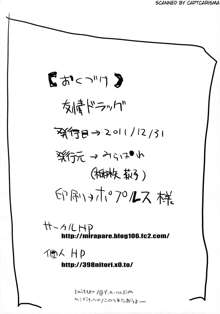 SCANNED BY CAPTCARISMA
【おくづけ】
友情ドラッグ
発行日→2011/12/31
発行元→みらぱれ
印刷→ポプルス様
サークルHP
http://mirapare.blog106.fc2.com/
個人HP
http://398nitori.x0.to/